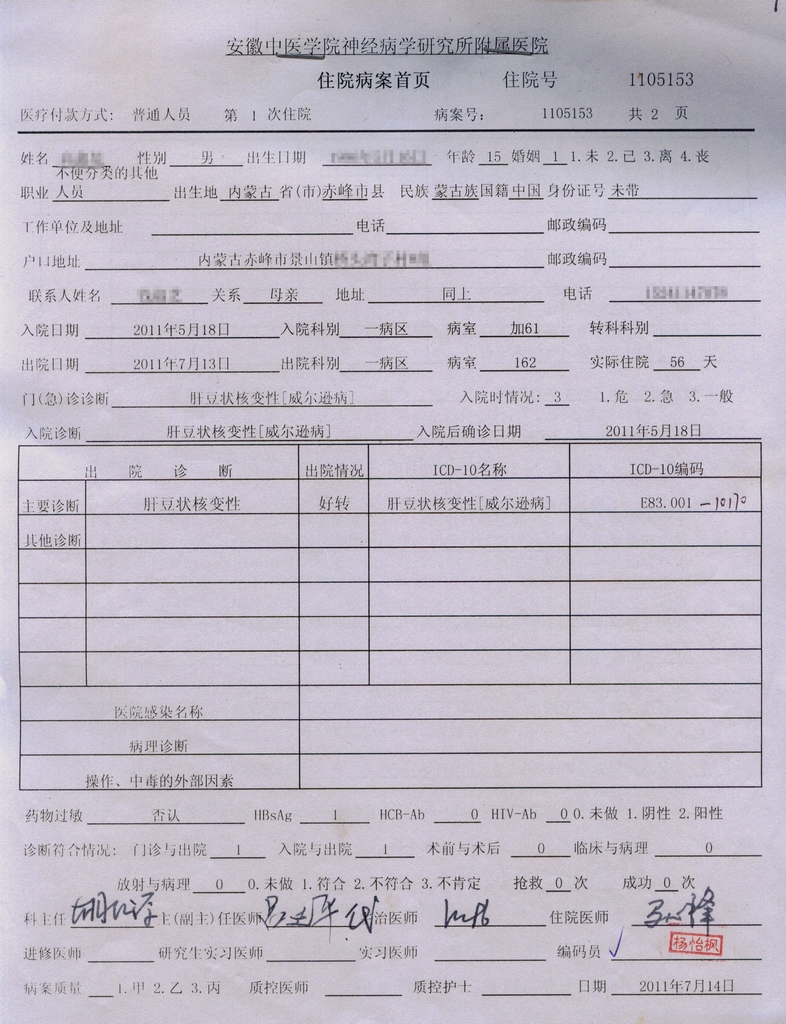 安徽中医学院神经病学研究所附属医院
住院病案首页 住院号 1105153
医疗付款方式: 普通人员 第 1 次住院 病案号: 1105153 共 2 页
姓名 性别 男 出生日期 年龄 15 婚姻 1 1.未 2.已 3.离 4.丧
不便分类的其他
职业 人员 出生地 内蒙古 省(市)赤峰市县 民族 蒙古族 国籍 中国 身份证号 未带
工作单位及地址 电话 邮政编码
户口地址 内蒙古赤峰市景山镇 邮政编码
联系人姓名 关系 母亲 地址 同上 电话
入院日期 2011年5月18日 入院科别 一病区 病室 加61 转科科别
出院日期 2011年7月13日 出院科别 一病区 病室 162 实际住院 56 天
门(急)诊诊断 肝豆状核变性[威尔逊病] 入院时情况: 3 1.危 2.急 3.一般
入院诊断 肝豆状核变性[威尔逊病] 入院后确诊日期 2011年5月18日
出 院 诊 断 出院情况 ICD-10名称 ICD-10编码
主要诊断 肝豆状核变性 好转 肝豆状核变性[威尔逊病] E83.001 -10170
其他诊断
医院感染名称
病理诊断
操作、中毒的外部因素
药物过敏 否认 HBsAg 1 HCB-Ab 0 HIV-Ab 0 0.未做 1.阴性 2.阳性
诊断符合情况: 门诊与出院 1 入院与出院 1 术前与术后 0 临床与病理 0
放射与病理 0 0.未做 1.符合 2.不符合 3.不肯定 抢救 0 次 成功 0 次
科主任 主(副主)任医师 治医师 住院医师
进修医师 研究生实习医师 实习医师 编码员 ✓ 杨怡枫
病案质量 1.甲 2.乙 3.丙 质控医师 质控护士 日期 2011年7月14日